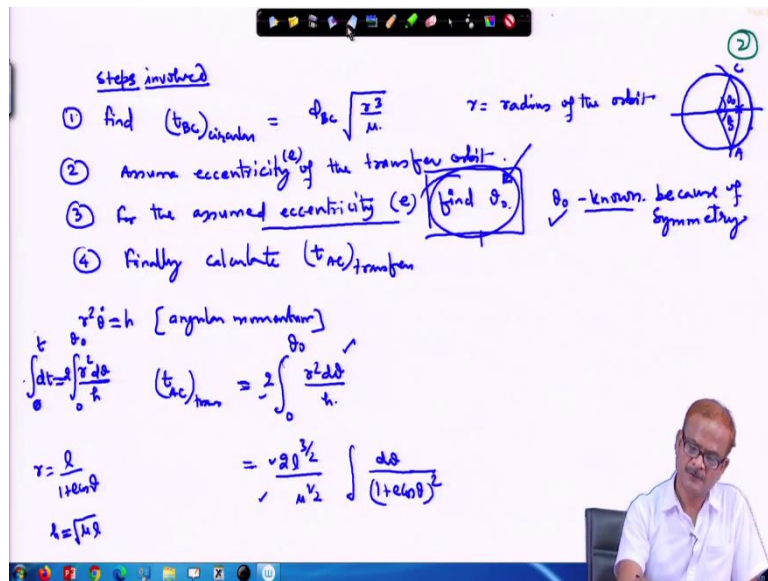 2
Steps involved
① find (t_BC)circular = ϕ_BC √(r³/μ) r = radius of the orbit
② Assume eccentricity (e) of the transfer orbit.
③ for the assumed eccentricity (e) find θ₀. θ₀ - known. because of
symmetry
④ Finally calculate (t_AC)transfer
r²θ̇ = h [angular momentum]
∫₀ᵗ dt = 2∫₀^θ₀ r²dθ/h (t_AC)trans = 2∫₀^θ₀ r²dθ/h.
r = l/(1+ecosθ) = 2l^(3/2)/μ^(1/2) ∫ dθ/(1+ecosθ)²
h = √μl
C
θ₀
A